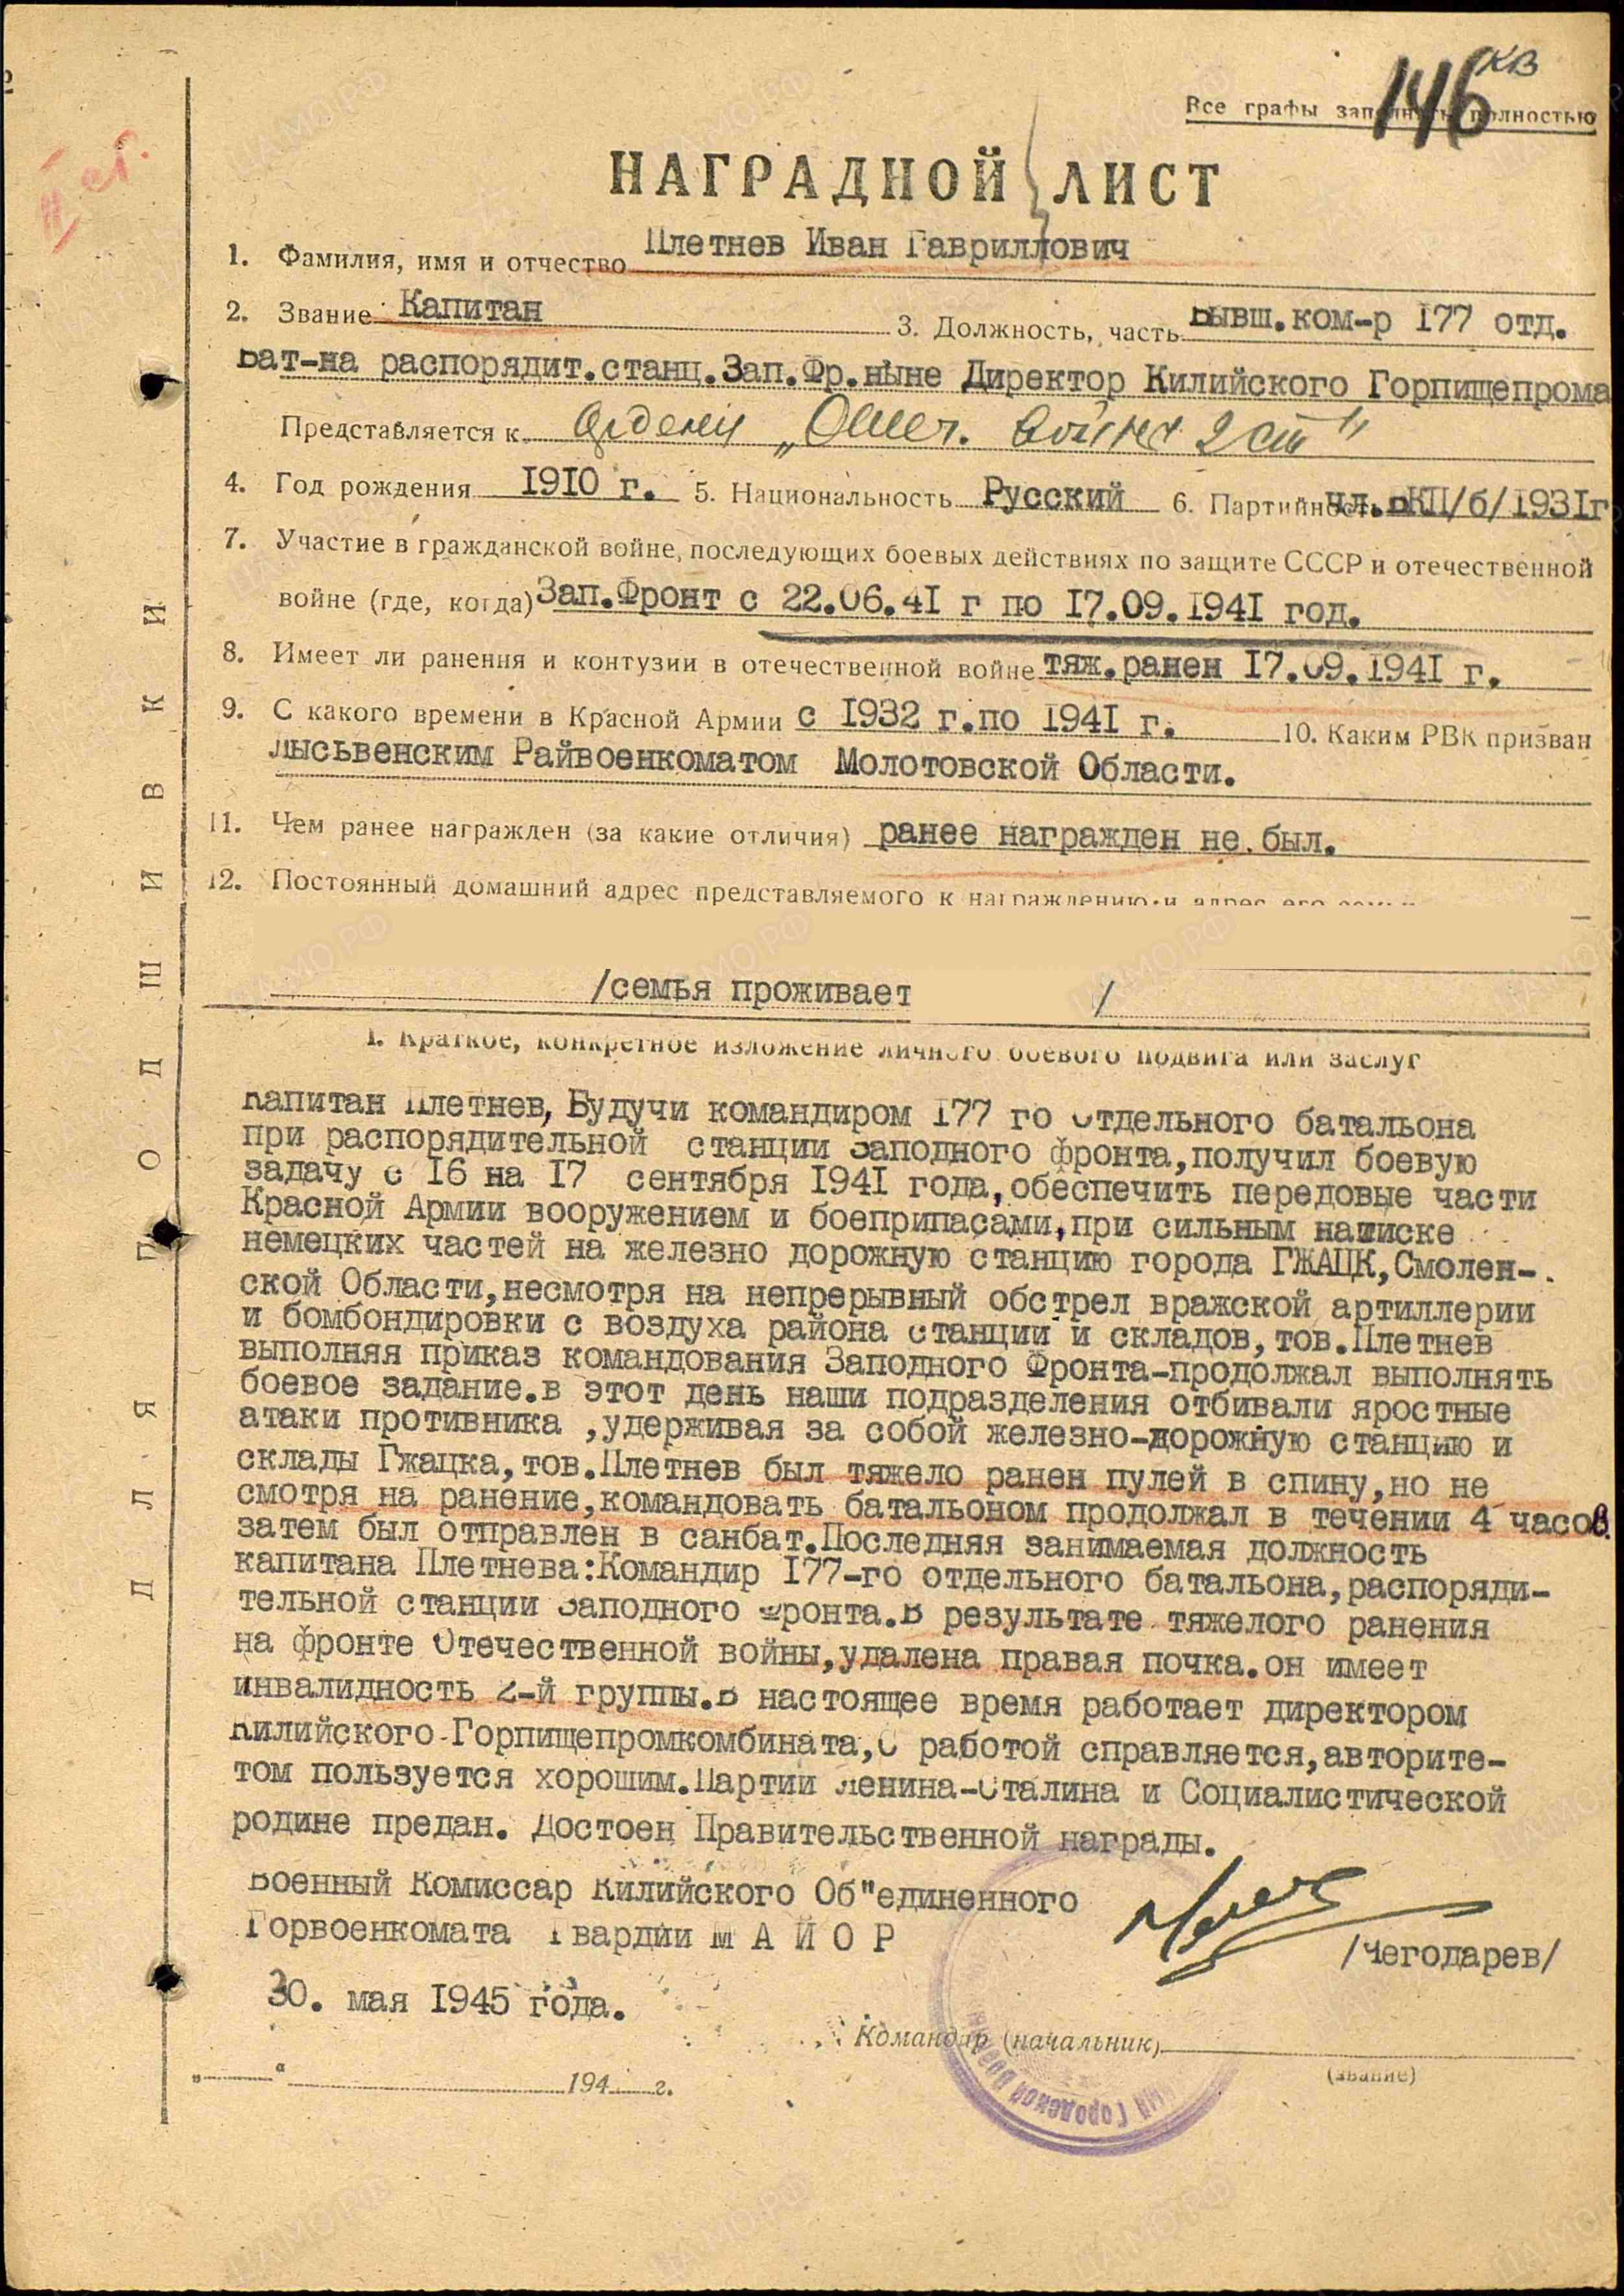 146 КВ
Все графы заполнять полностью
II ст.
НАГРАДНОЙ ЛИСТ
1. Фамилия, имя и отчество Плетнев Иван Гавриллович
2. Звание Капитан 3. Должность, часть Бывш.ком-р 177 отд.
Бат-на распорядит.станц.Зап.Фр.ныне Директор Килийского Горпищепрома
Представляется к Ордену „Отеч. войны 2 ст"
4. Год рождения 1910 г. 5. Национальность Русский 6. Партийность чл.ВКП/б/1931г
7. Участие в гражданской войне, последующих боевых действиях по защите СССР и отечественной
войне (где, когда) Зап.Фронт с 22.06.41 г по 17.09.1941 год.
8. Имеет ли ранения и контузии в отечественной войне тяж.ранен 17.09.1941 г.
9. С какого времени в Красной Армии с 1932 г.по 1941 г. 10. Каким РВК призван
Лысьвенским Райвоенкоматом Молотовской Области.
11. Чем ранее награжден (за какие отличия) ранее награжден не был.
12. Постоянный домашний адрес представляемого к награждению и адрес его семьи
/семья проживает /
1. Краткое, конкретное изложение личного боевого подвига или заслуг
Капитан Плетнев, Будучи командиром 177 го Отдельного батальона
при распорядительной станции Заподного фронта,получил боевую
задачу с 16 на 17 сентября 1941 года,обеспечить передовые части
Красной Армии вооружением и боеприпасами,при сильным натиске
немецких частей на железно дорожную станцию города ГЖАЦК,Смолен-
ской Области,несмотря на непрерывный обстрел вражской артиллерии
и бомбондировки с воздуха района станции и складов,тов.Плетнев
выполняя приказ командования Заподного Фронта-продолжал выполнять
боевое задание.В этот день наши подразделения отбивали яростные
атаки противника ,удерживая за собой железно-дорожную станцию и
склады Гжацка,тов.Плетнев был тяжело ранен пулей в спину,но не
смотря на ранение,командовать батальоном продолжал в течении 4 часов.
затем был отправлен в санбат.Последняя занимаемая должность
капитана Плетнева:Командир 177-го отдельного батальона,распоряди-
тельной станции Заподного Фронта.В результате тяжелого ранения
на фронте Отечественной войны,удалена правая почка.он имеет
инвалидность 2-й группы.В настоящее время работает директором
Килийского Горпищепромкомбината,С работой справляется,авторите-
том пользуется хорошим.Партии Ленина-Сталина и Социалистической
родине предан. Достоен Правительственной награды.
Военный Комиссар Килийского Об"единенного
Горвоенкомата Гвардии М А Й О Р
/Чегодарев/
30. мая 1945 года.
Командир (начальник)
(звание)
„ " 194 г.
ДЛЯ ПОДШИВКИ